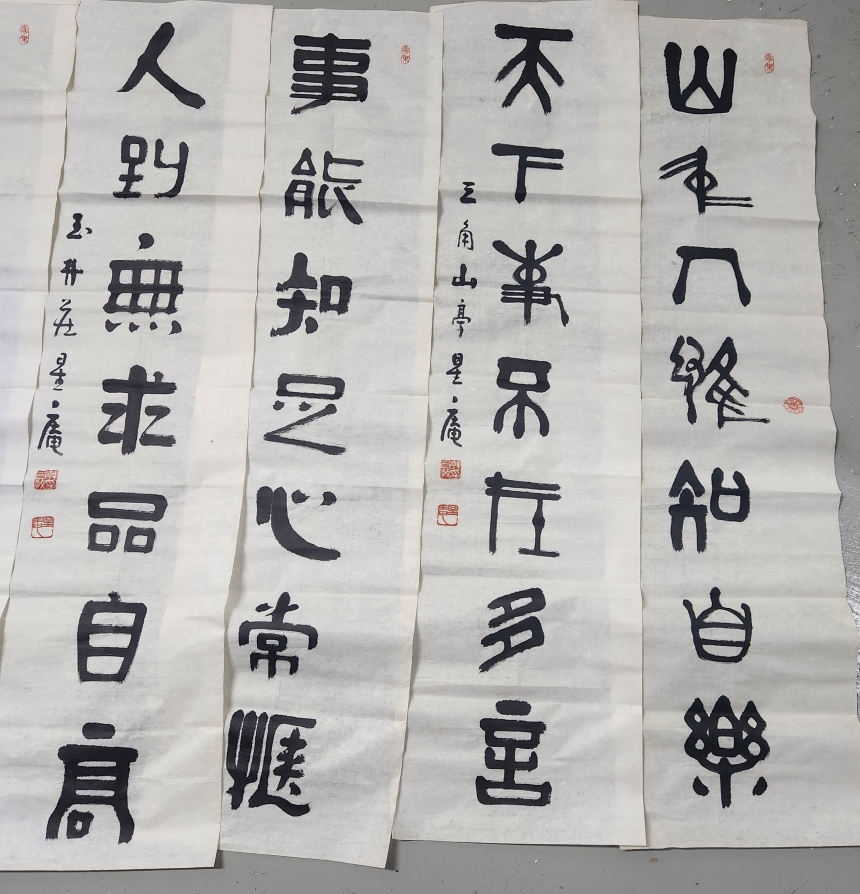 山
知自樂
天下事不在多言
三角山亭星々庵
事能知足心常愜
人到無求品自高
玉井莊星々庵